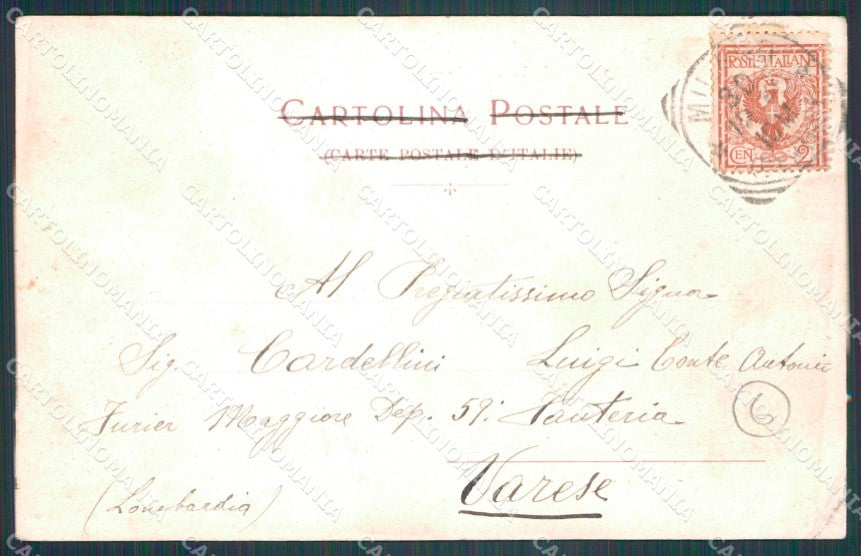 CARTOLINA POSTALE
(CARTE POSTALE D'ITALIE)
POSTE ITALIANE
CEN. 2
Al Pregiatissimo Signor
Sig. Cardellini Luigi Conte Antonio
Furier Maggiore Dep. 59: Fanteria
Varese
(Lombardia)
CARTOLINOMANIA